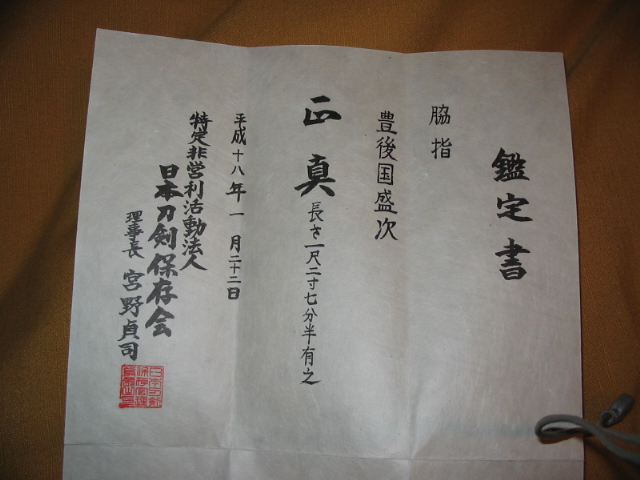 鑑定書
脇指
豊後国盛次
正真 長さ一尺二寸七分半有之
平成十八年一月二十二日
特定非営利活動法人
日本刀剣保存会
理事長 宮野貞司